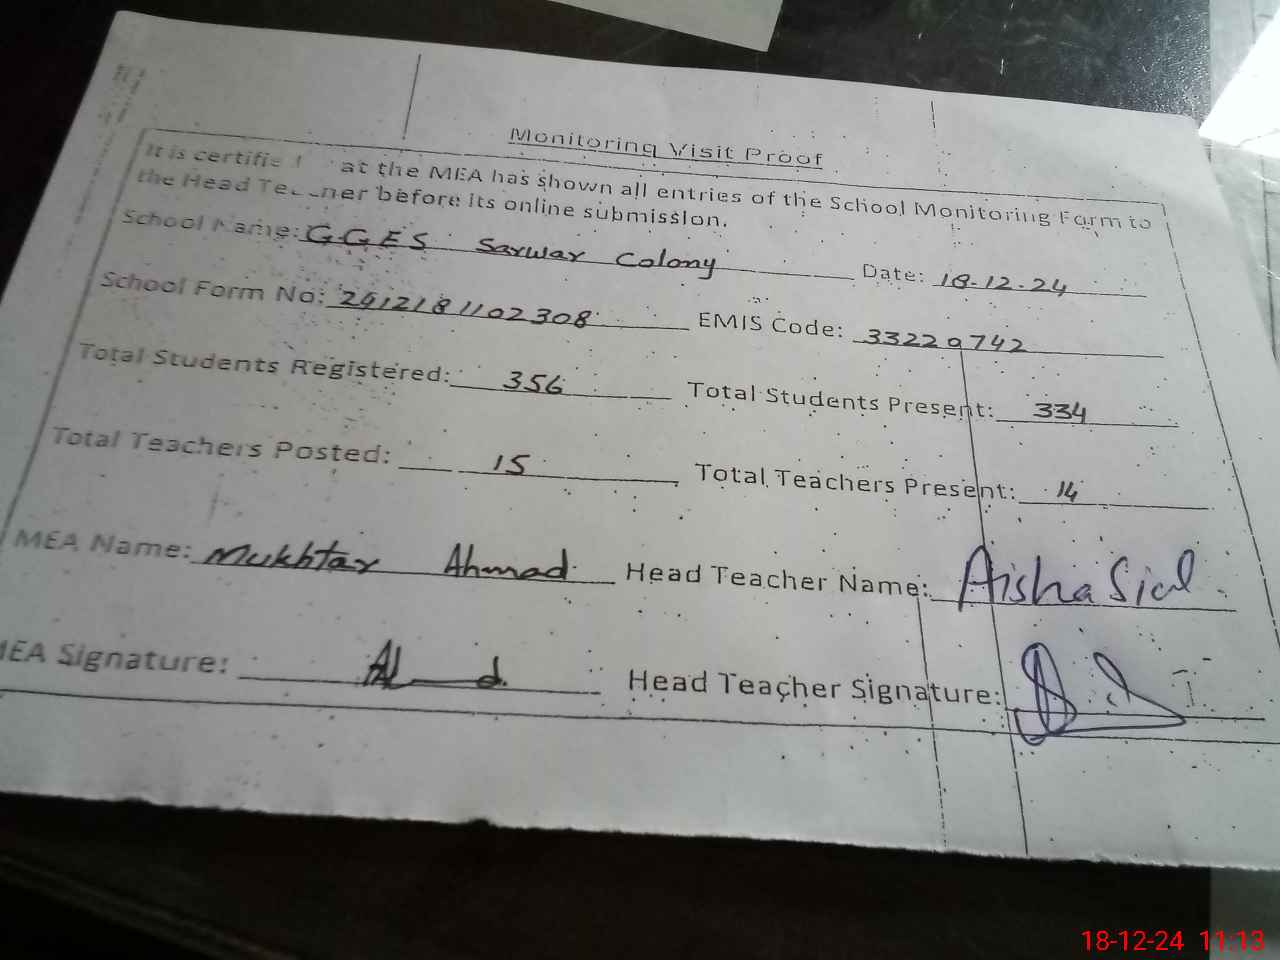 Monitoring Visit Proof
It is certified that the MEA has shown all entries of the School Monitoring Form to
the Head Teacher before its online submission.
School Name: GGES Sarwar Colony Date: 18-12-24
School Form No: 2412181102308 EMIS Code: 33229742
Total Students Registered: 356 Total Students Present: 334
Total Teachers Posted: 15 Total Teachers Present: 14
MEA Name: Mukhtar Ahmad Head Teacher Name: Aisha Sial.
MEA Signature: Head Teacher Signature:
18-12-24 11:13